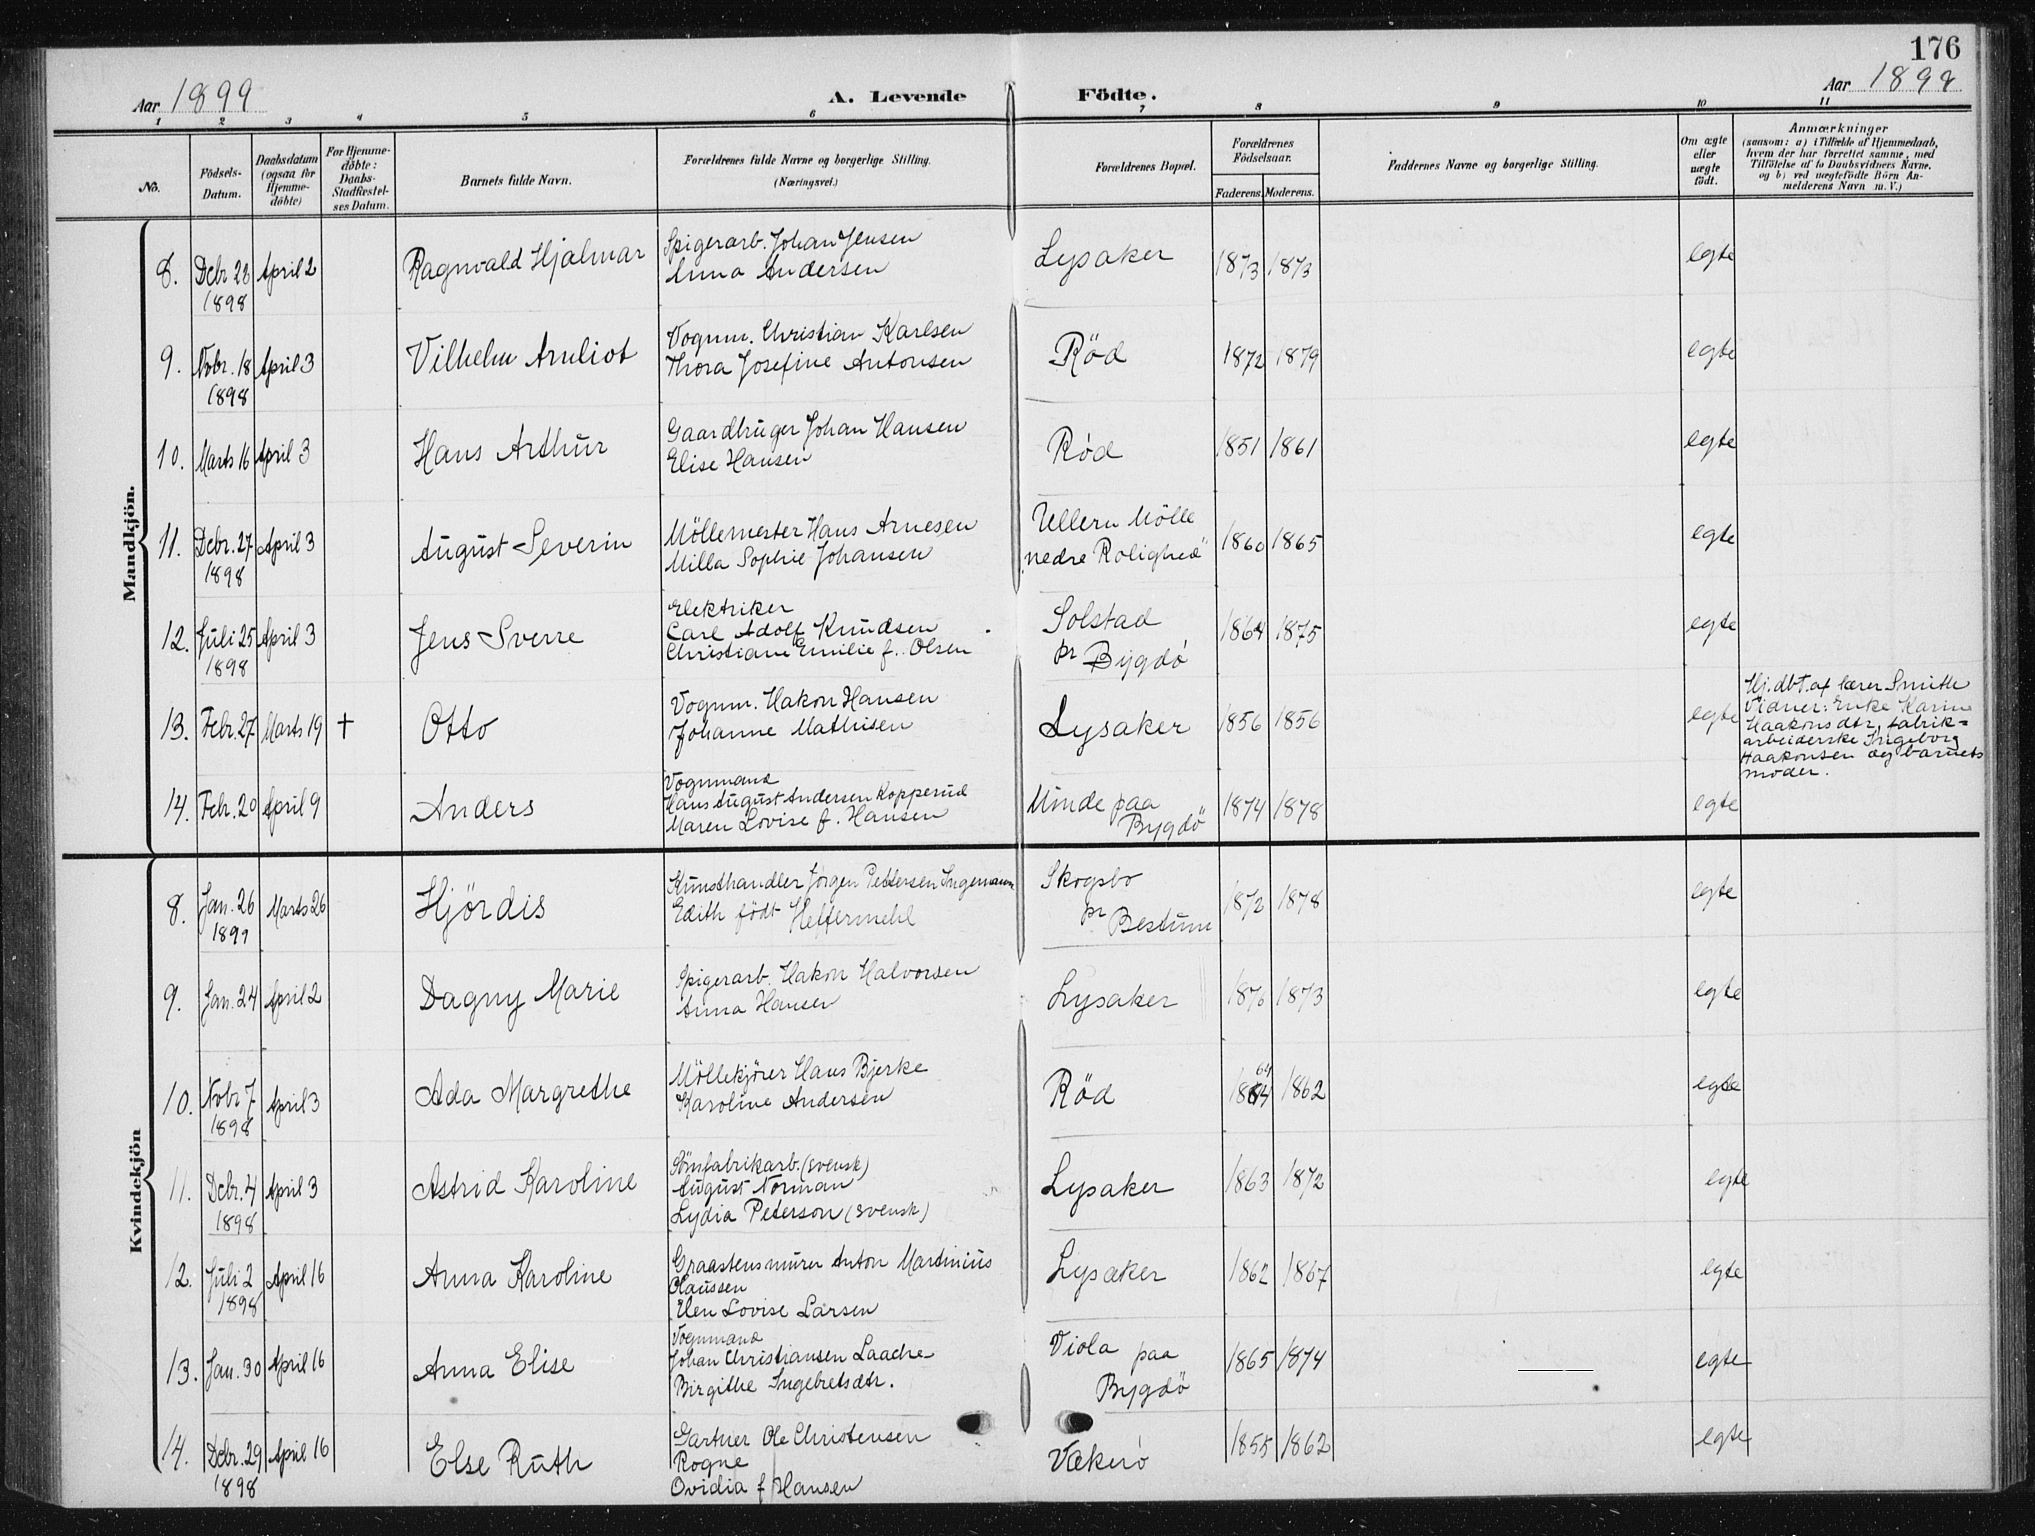 176
Aar 1899 A. Levende Födte. Aar 1899
1 2 3 4 5 6 7 8 9 10 11
No. Födsels-Datum. Daabsdatum (ogsaa for Hjemmedöbte) For Hjemmedöbte: Daabs-Stadfæstelses Datum. Barnets fulde Navn. Forældrenes fulde Navne og borgerlige Stilling. (Næringsvei.) Forældrenes Bopæl. Forældrenes Födselsaar. Faderens. Moderens. Faddernes Navne og borgerlige Stilling. Om ægte eller uægte födt. Anmærkninger (saasom: a) i Tilfælde af Hjemmedaab, hvem der har forrettet samme, med Tilföielse af to Daabsvidners Navne. og b) ved uægtefödte Börn Anmelderens Navn m. V.)
Mandkjön.
8. Debr 23 1898 April 2 Ragnvald Hjalmar Spigerarb. Johan Jensen Anna Andersen Lysaker 1873 1873 egte
9. Nobr. 18 1898 April 3 Vilhelm Arnliot Vognm. Christian Karlsen Thora Josefine Antonsen Röd 1872 1879 egte
10. Marts 16 April 3 Hans Arthur Gaardbruger Johan Hansen Elise Hansen Rød 1851 1861 egte
11. Debr. 27 1898 April 3 August Severin Möllemester Hans Arnesen Milla Sophie Johansen Ullern Mölle "nedre Rolighed" 1860 1865 egte
12. Juli 25 1898 April 3 Jens Sverre Elektriker Carl Adolf Knudsen Christiane Emilie f. Olsen Solstad pr Bygdö 1864 1875 egte
13. Febr. 27 Marts 19 † Otto Vognm. Hakon Hansen Johanne Mathisen Lysaker 1856 1856 egte Hj.dbt. af lærer Smith Vidner: Enke Karine Haakonsdtr, fabrik=arbeiderske Ingeborg Haakonsen og barnets moder.
14. Febr. 20 April 9 Anders Vognmand Hans August Andersen Kopperud Maren Lovise f. Hansen Minde paa Bygdö 1874 1878 egte
Kvindekjön
8. Jan. 26 1899 Marts 26 Hjördis Kunsthandler Jörgen Pettersen Ingemann Edith födt Heffermehl Skogsbo pr Bestum 1872 1878 egte
9. Jan. 24 April 2 Dagny Marie Spigerarb. Hakon Halvorsen Anna Hansen Lysaker 1876 1873 egte
10. Nobr 7 1898 April 3 Ada Margrethe Möllekjörer Hans Bjerke Karoline Andersen Röd 64 1862 egte
11. Debr. 4 1898 April 3 Astrid Karoline Sömfabrikarb. (svensk) August Norman Lydia Peterson (svensk) Lysaker 1863 1872 egte
12. Juli 2 1898 April 16 Anna Karoline Graastensmurer Anton Martinius Claussen Elen Lovise Larsen Lysaker 1862 1867 egte
13. Jan. 30 April 16 Anna Elise Vognmand Johan Christiansen Laache Birgithe Ingebretsdtr. Viola paa Bygdö 1865 1874 egte
14. Debr. 29 1898 April 16 Else Ruth Gartner Ole Christensen Rogne Ovidia f Hansen Vækerö 1855 1862 egte